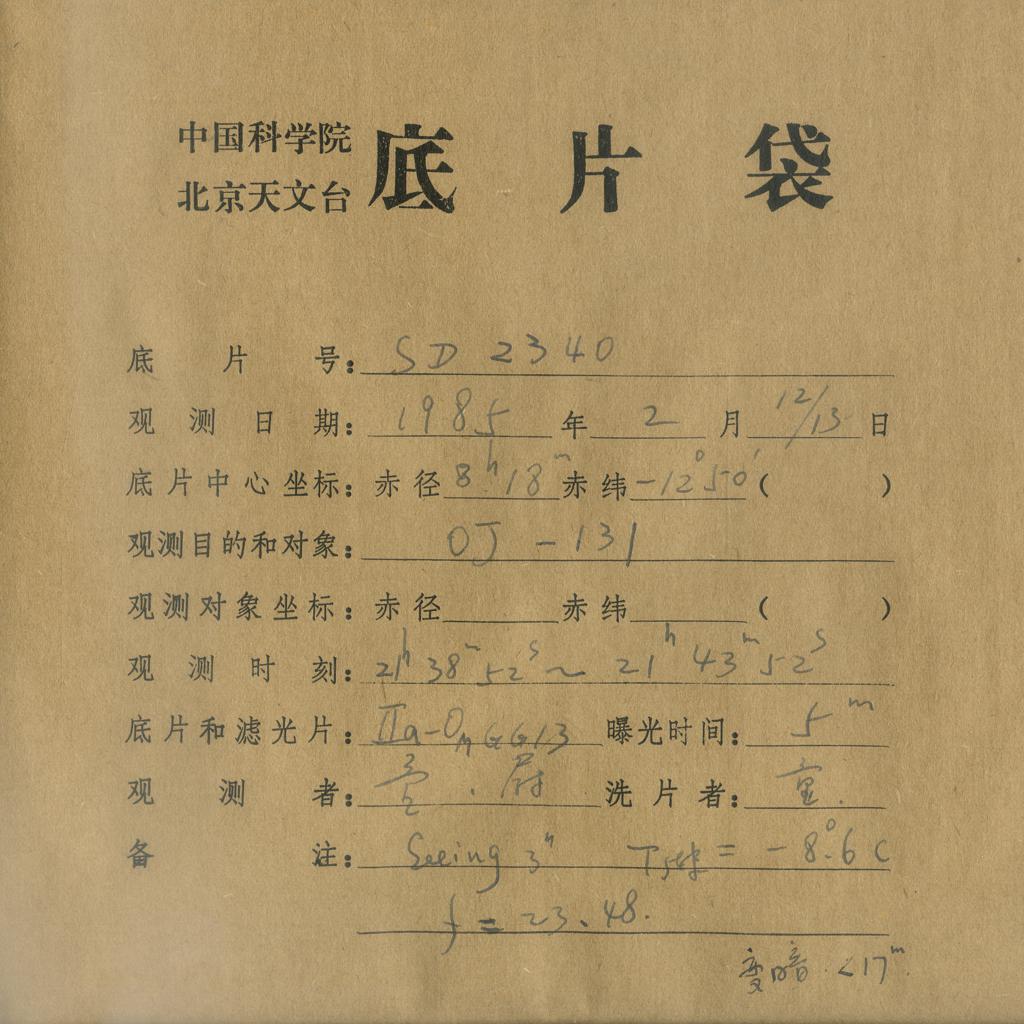 中国科学院
北京天文台 底片袋
底片号: SD 2340
观测日期: 1985年2月12/13日
底片中心坐标: 赤径8h18m赤纬-12°50′( )
观测目的和对象: OJ-131
观测对象坐标: 赤径 赤纬 ( )
观测时刻: 21h38m52s~21h43m52s
底片和滤光片: IIa-O GG13 曝光时间: 5m
观测者: 尉 洗片者: 童.
备注: Seeing 3" T = -8°.6C
f=23.48.
变暗.<17m.